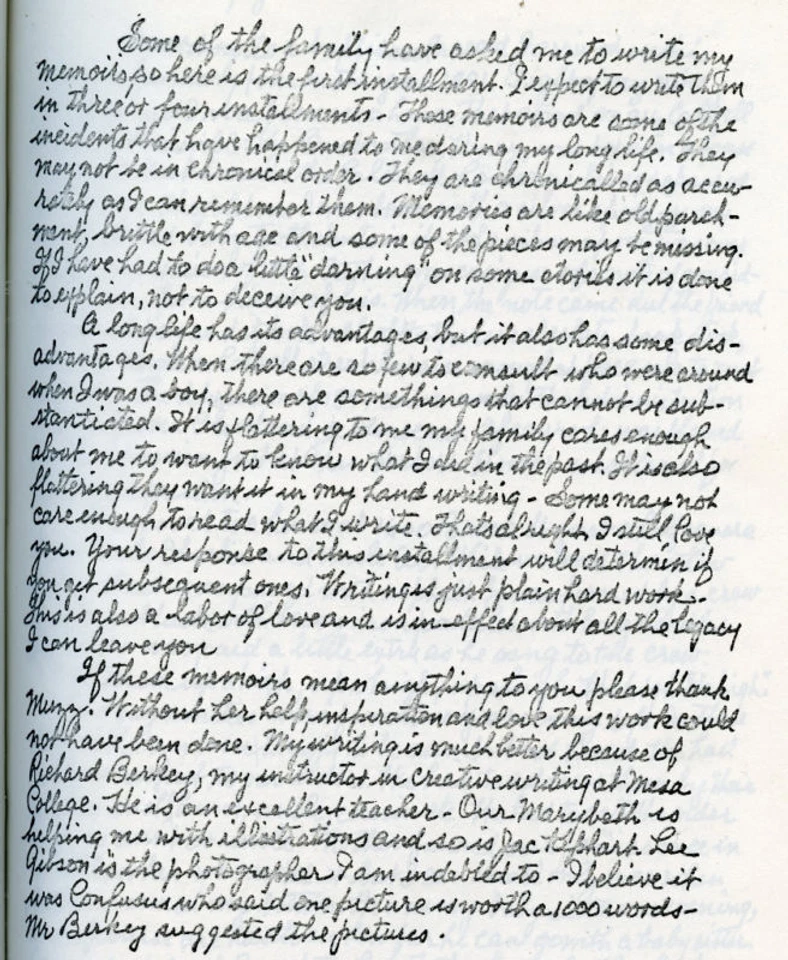 Some of the family have asked me to write my
memoirs, so here is the first installment. I expect to write them
in three or four installments - These memoirs are some of the
incidents that have happened to me during my long life. They
may not be in chronical order. They are chronicalled as accu-
rately as I can remember them. Memories are like old parch-
ment, brittle with age and some of the pieces may be missing.
If I have had to do a little "darning" on some stories it is done
to explain, not to deceive you.
A long life has its advantages, but it also has some dis-
advantages. When there are so few to consult who were around
when I was a boy, there are some things that cannot be sub-
stanticted. It is flattering to me my family cares enough
about me to want to know what I did in the past. It is also
flattering they want it in my hand writing - Some may not
care enough to read what I write. Thats alright, I still love
you. Your response to this installment will determin if
you get subsequent ones. Writing is just plain hard work -
This is also a labor of love and is in effect about all the legacy
I can leave you
If these memoirs mean anything to you please thank
Muzz. Without her help, inspiration and love this work could
not have been done. My writing is much better because of
Richard Berkey, my instructor in creative writing at Mesa
College. He is an excellent teacher - Our Marybeth is
helping me with illustrations and so is Jac Kephart. Lee
Gibson is the photographer I am indebled to - I believe it
was Confusus who said one picture is worth a 1000 words -
Mr Berkey suggested the pictures.